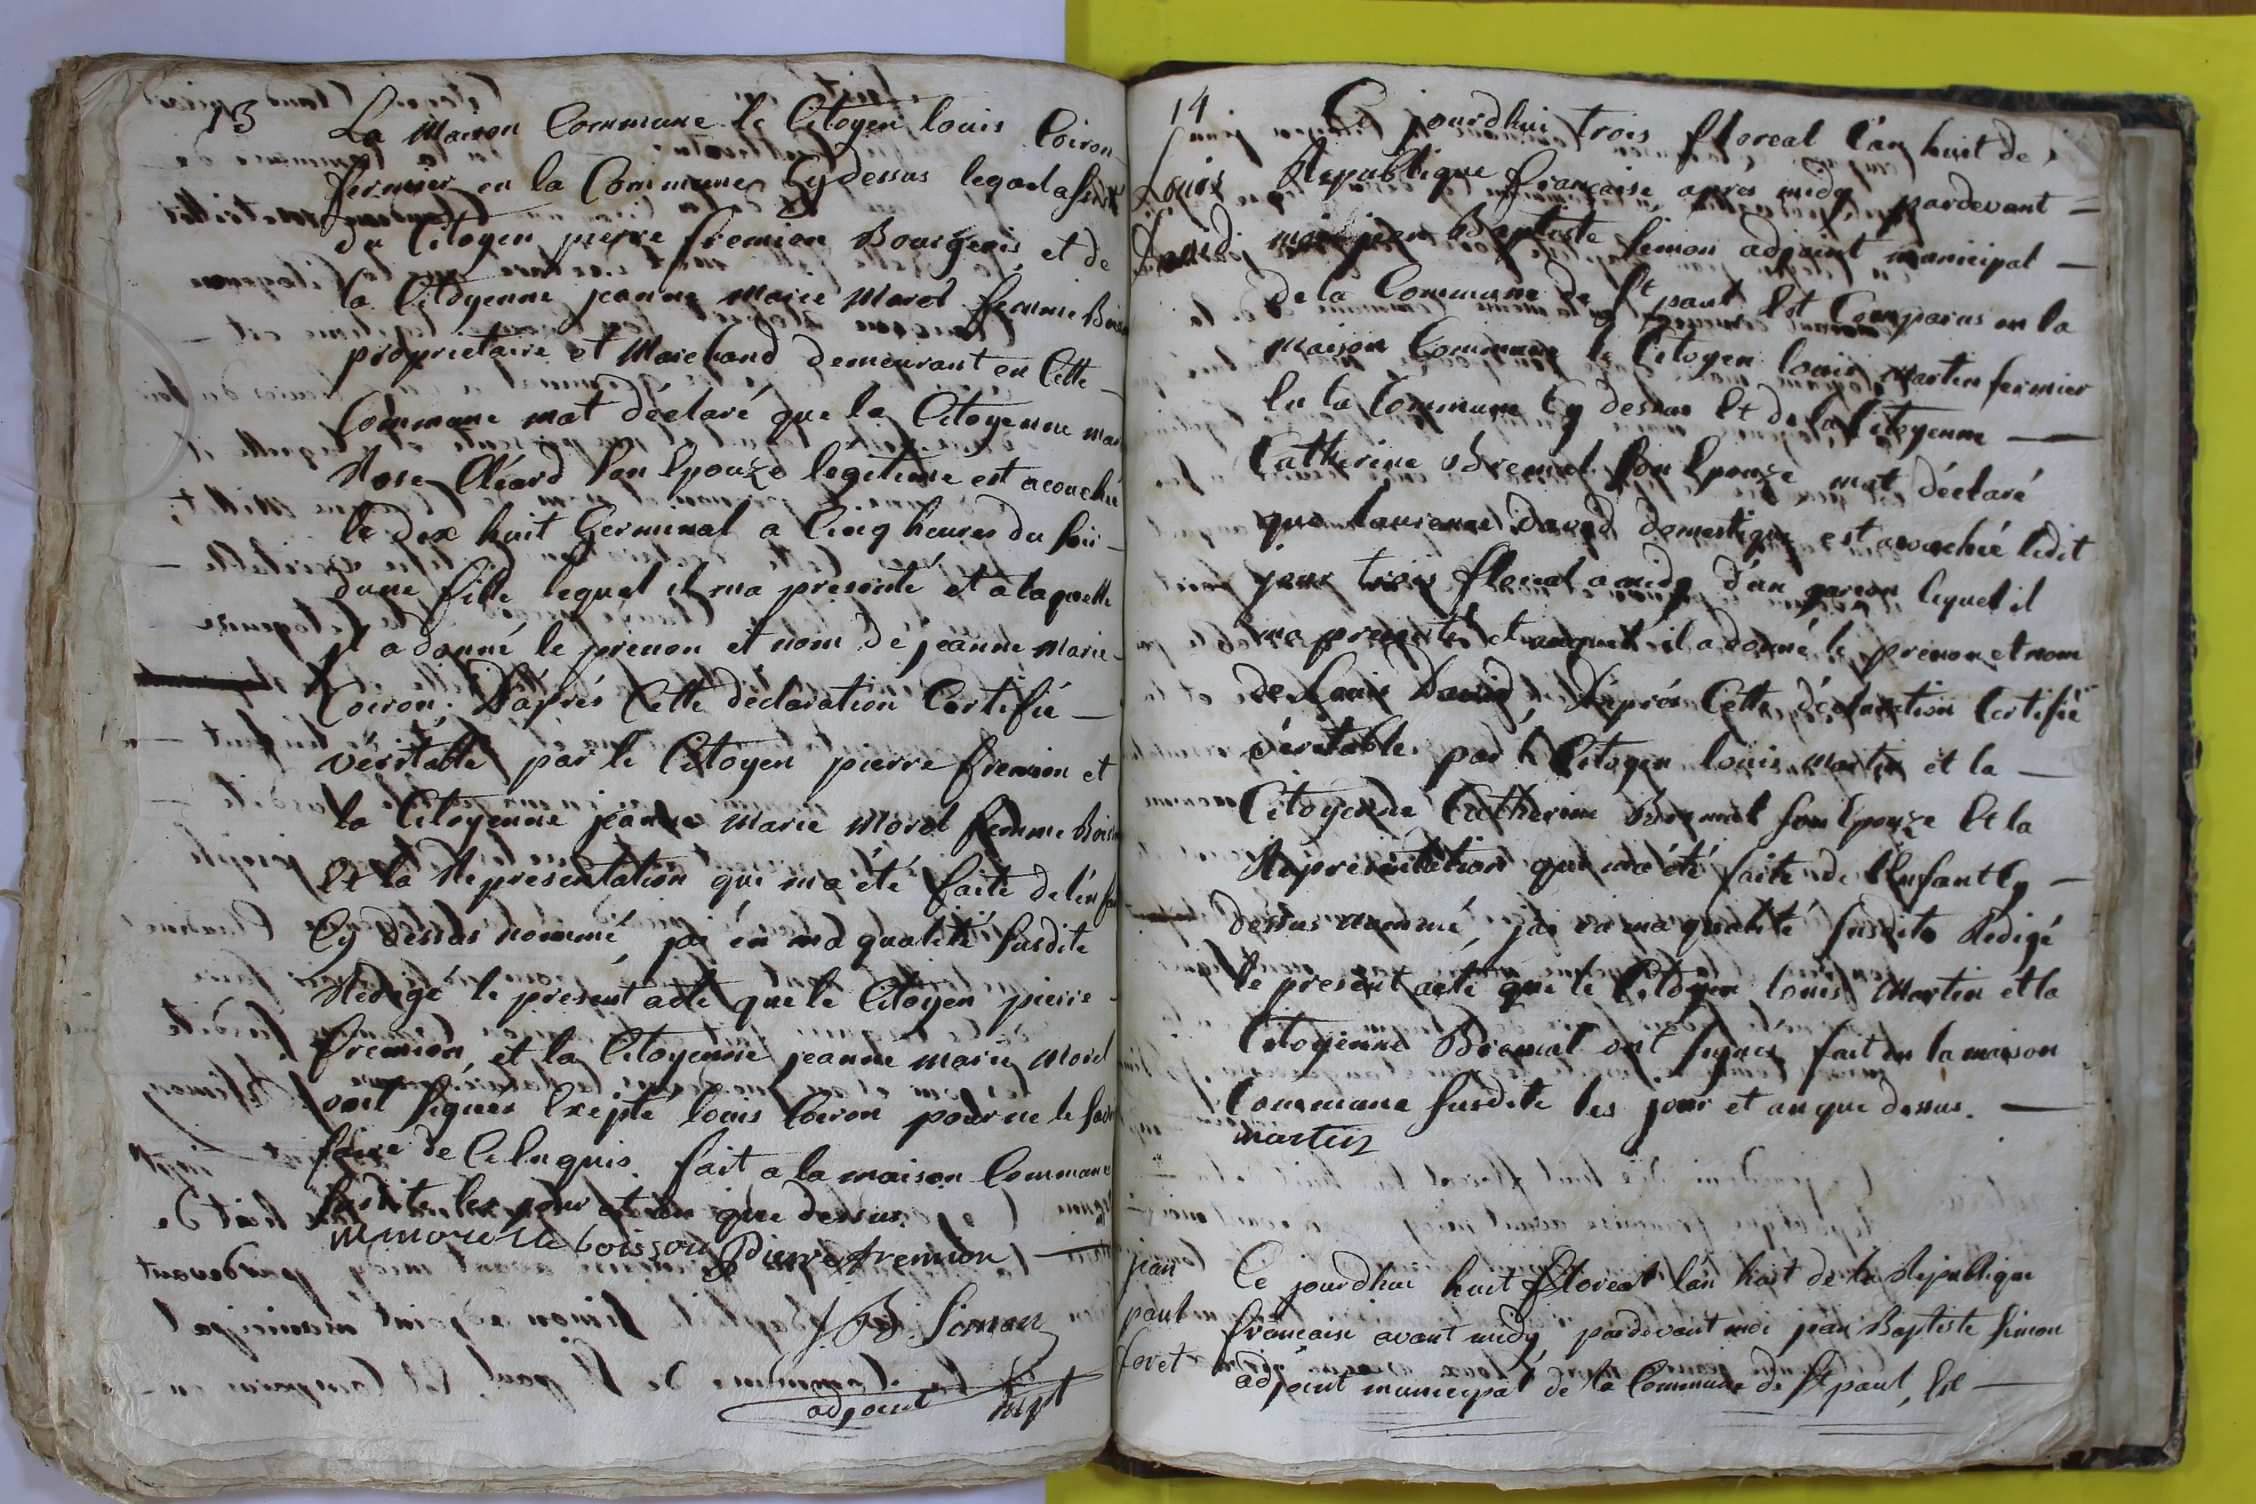 13
La Maison Commune le Citoyen louis Coiron
fermier en la Commune Cydessus lequel assisté
du Citoyen pierre fremion Bourgeois, et de
la Citoyenne jeanne marie Morel femme
proprietaire et Marchand demeurant en Cette
Commune mat déclaré que la Citoyenne
Rose Cléard Son Epouze legitime est acouchée
le dix huit Germinal a Cinq heures du soir
d'une fille lequel il ma presenté et a laquelle
il a donné le prenon et nom de jeanne Marie
Coiron. D'aprés Cette déclaration Certifié
véritable par le Citoyen pierre fremion et
la Citoyenne jeanne Marie Morel femme
Et la Representation qui m'a été faite de l'en
Cy dessus nommé, jai en ma qualité Susdite
Redigé le present acte que le Citoyen pierre
fremion, et la Citoyenne jeanne marie Morel
ont signés Exepté louis Coiron pour ne le
faire de Ce Enquis. fait a la maison Commune
Susdite les jour et an que dessus.
boisson Pierre fremion
J. B. Simon
adjoint mpl
14
Louis
David
Ce jourdhui trois floreal l'an huit de
Republique francaise, aprés midy pardevant
moi jean Baptiste Simon adjoint municipal
de la Commune de St paul Est Comparus en la
maison Commune le Citoyen louis Martin fermier
En la Commune Cy dessus Et de la Citoyenne
Catherine Son Epouze mat déclaré
que David domestique est acouchée ledit
jour trois floreal a midy d'un garcon lequel il
ma presenté et auquel il a donné le prenon et nom
de Louis David, D'aprés Cette déclaration Certifié
véritable par le Citoyen louis Martin et la
Citoyenne Catherine Son Epouze Et la
Représentation qui ma été faite de l'Enfant Cy
dessus nommé, jai en ma qualité Susdite Redigé
le present acte que le Citoyen louis Martin et la
Citoyenne ont signés fait en la maison
Commune Susdite les jour et an que dessus.
martin
jean
paul
Ce jourdhui huit Floreal l'an huit de la Republique
francaise avant midy, pardevant moi jean Baptiste Simon
adjoint municipal de la Commune de St paul, Est